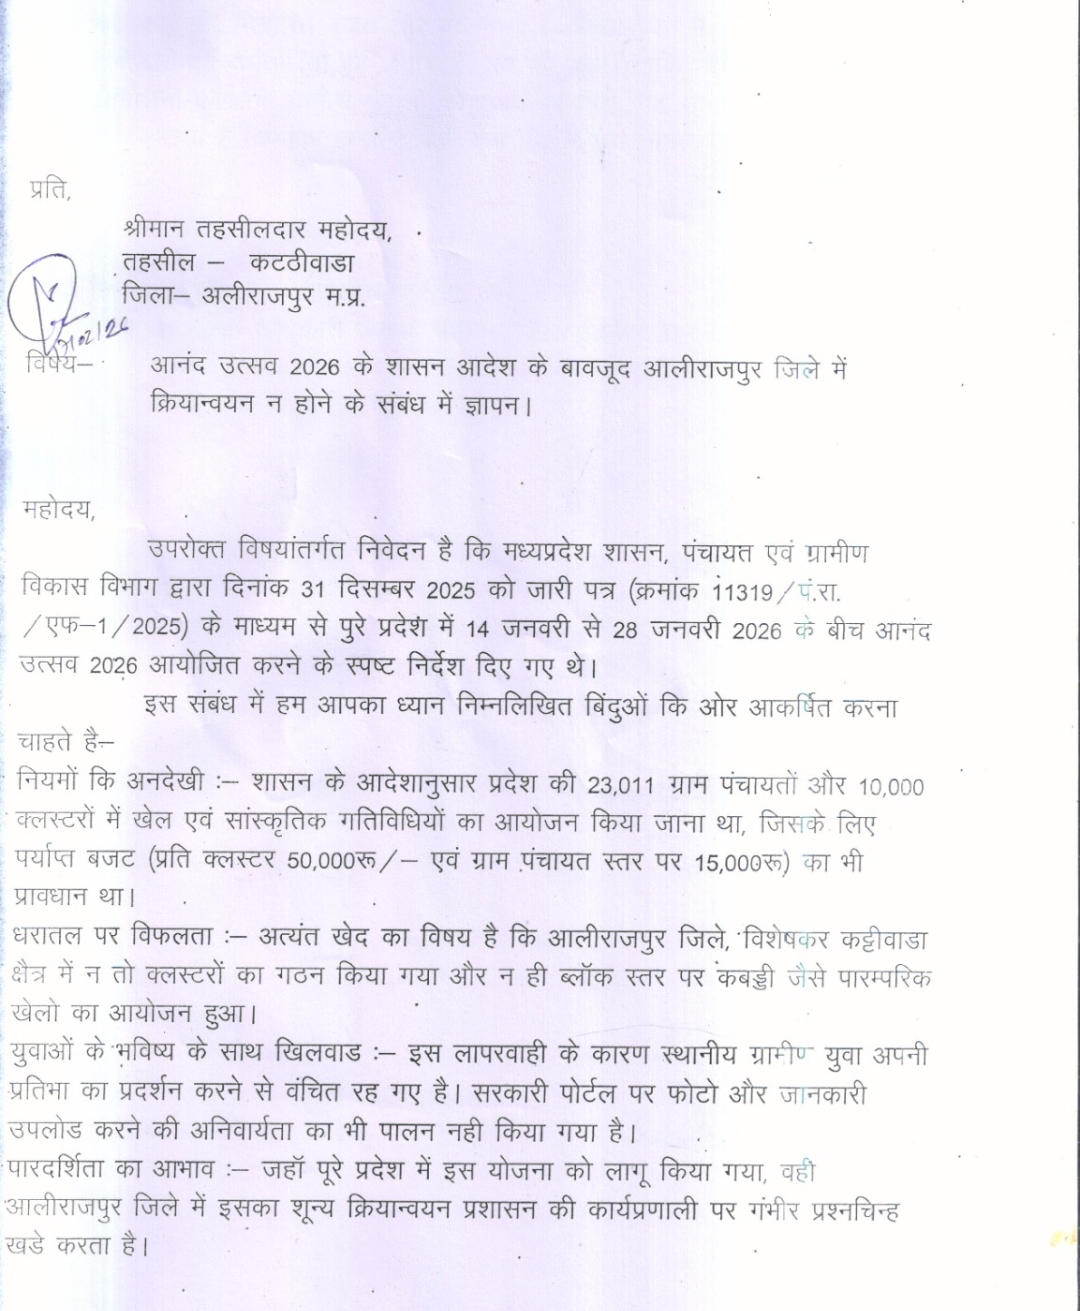 प्रति,
श्रीमान तहसीलदार महोदय,
तहसील – कटठीवाडा
जिला– अलीराजपुर म.प्र.
02/26
विषय–
आनंद उत्सव 2026 के शासन आदेश के बावजूद आलीराजपुर जिले में
क्रियान्वयन न होने के संबंध में ज्ञापन।
महोदय,
उपरोक्त विषयांतर्गत निवेदन है कि मध्यप्रदेश शासन, पंचायत एवं ग्रामीण
विकास विभाग द्वारा दिनांक 31 दिसम्बर 2025 को जारी पत्र (क्रमांक 11319/पं.रा.
/एफ–1/2025) के माध्यम से पुरे प्रदेश में 14 जनवरी से 28 जनवरी 2026 के बीच आनंद
उत्सव 2026 आयोजित करने के स्पष्ट निर्देश दिए गए थे।
इस संबंध में हम आपका ध्यान निम्नलिखित बिंदुओं कि ओर आकर्षित करना
चाहते है–
नियमों कि अनदेखी :– शासन के आदेशानुसार प्रदेश की 23,011 ग्राम पंचायतों और 10,000
क्लस्टरों में खेल एवं सांस्कृतिक गतिविधियों का आयोजन किया जाना था, जिसके लिए
पर्याप्त बजट (प्रति क्लस्टर 50,000रू/– एवं ग्राम पंचायत स्तर पर 15,000रू) का भी
प्रावधान था।
धरातल पर विफलता :– अत्यंत खेद का विषय है कि आलीराजपुर जिले, विशेषकर कट्टीवाडा
क्षैत्र में न तो क्लस्टरों का गठन किया गया और न ही ब्लॉक स्तर पर कबड्डी जैसे पारम्परिक
खेलो का आयोजन हुआ।
युवाओं के भविष्य के साथ खिलवाड :– इस लापरवाही के कारण स्थानीय ग्रामीण युवा अपनी
प्रतिभा का प्रदर्शन करने से वंचित रह गए है। सरकारी पोर्टल पर फोटो और जानकारी
उपलोड करने की अनिवार्यता का भी पालन नही किया गया है।
पारदर्शिता का आभाव :– जहॉ पूरे प्रदेश में इस योजना को लागू किया गया, वही
आलीराजपुर जिले में इसका शून्य क्रियान्वयन प्रशासन की कार्यप्रणाली पर गंभीर प्रश्नचिन्ह
खडे करता है।